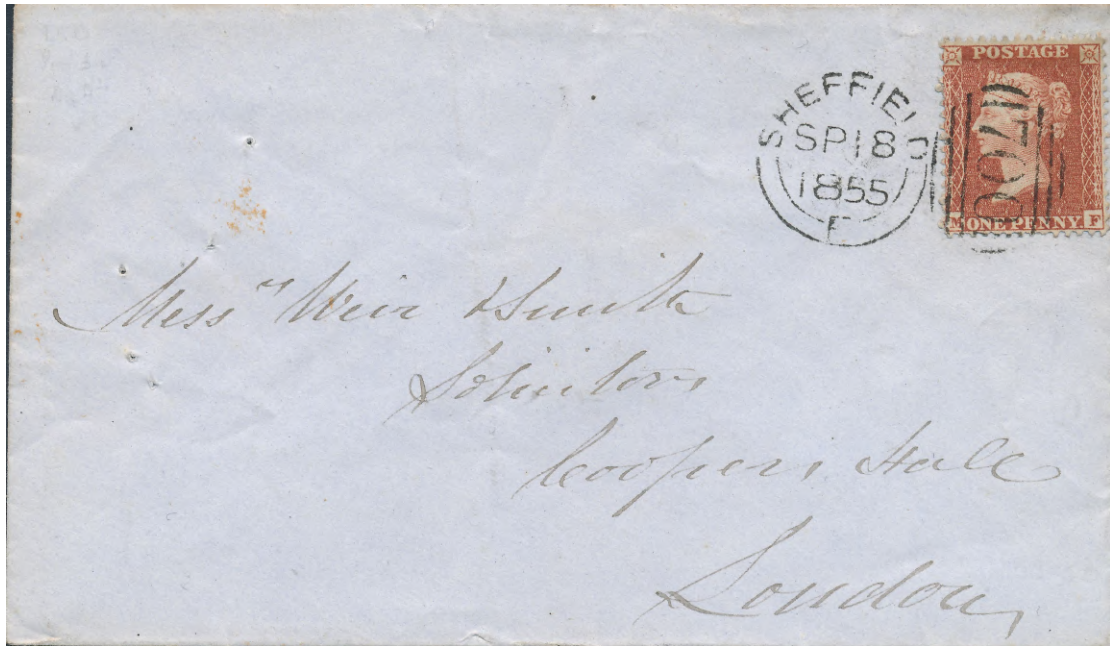 POSTAGE
SHEFFIELD
SP 18
1855
F
700
M ONE PENNY F
Mess^rs Weir & Smith
Solicitors
Coopers Hall
London